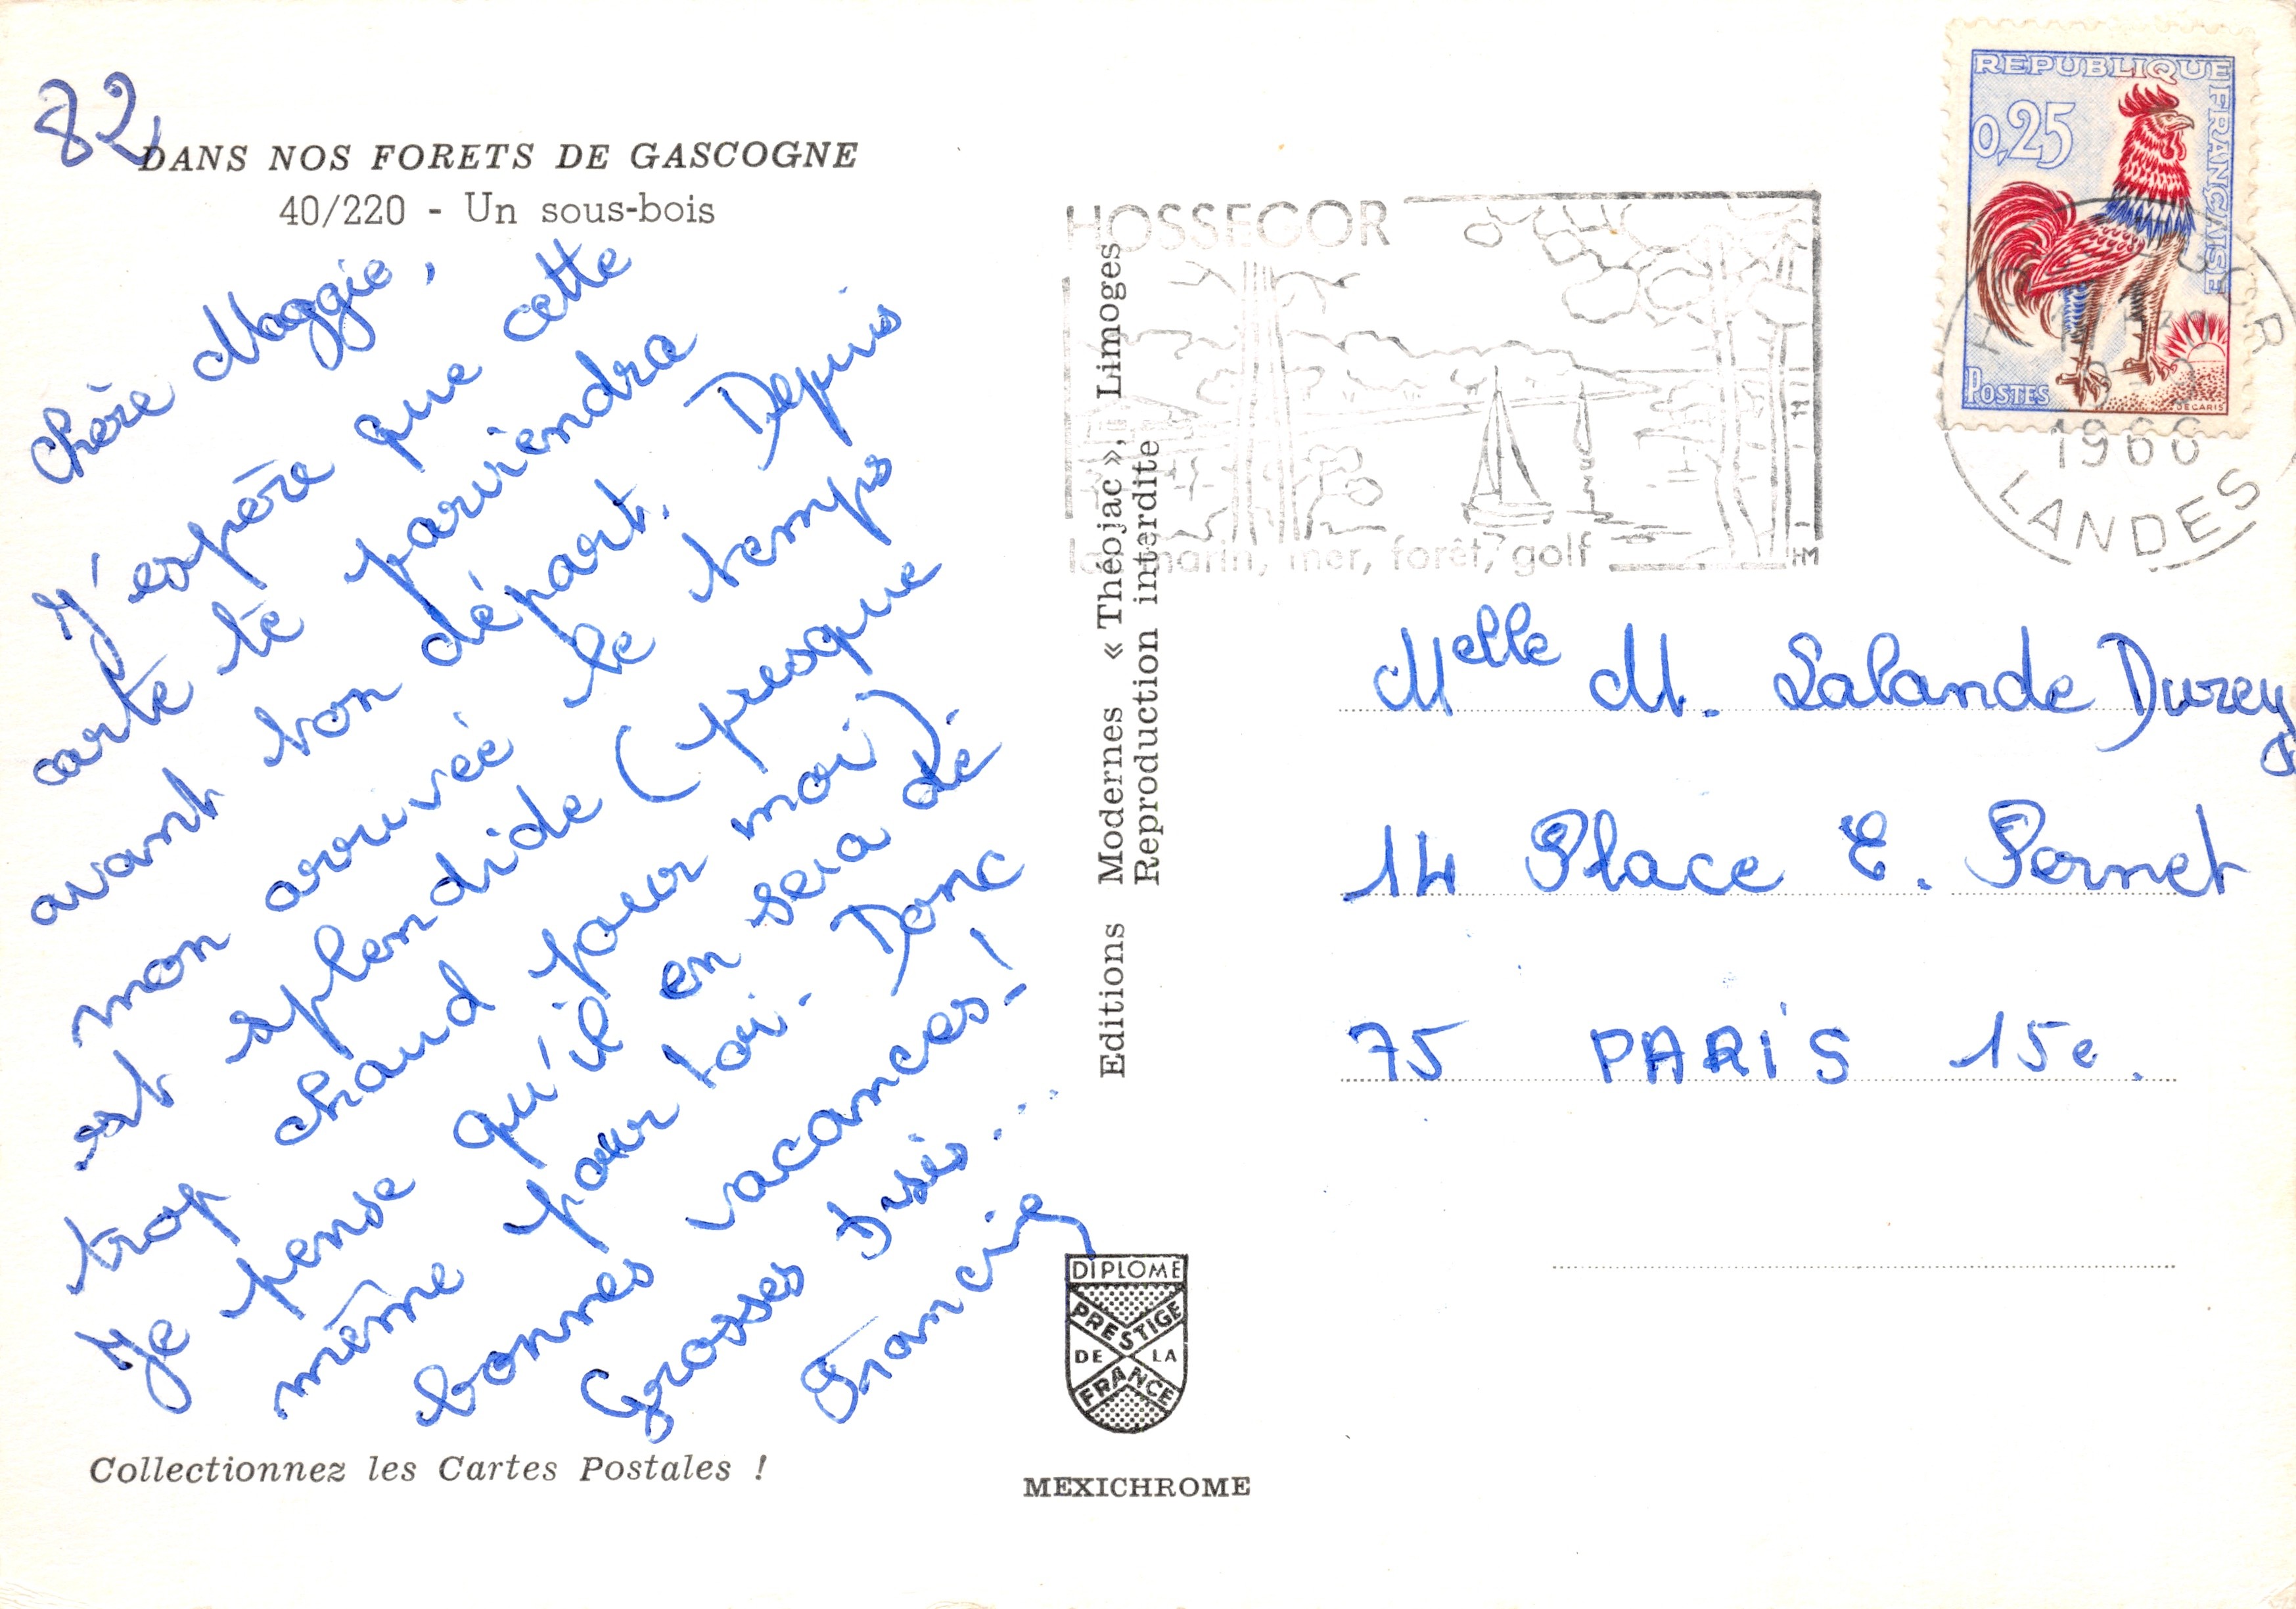 82
DANS NOS FORETS DE GASCOGNE
40/220 - Un sous-bois
chère Maggie,
J'espère que cette
carte te parviendra
avant ton départ. Depuis
mon arrivée le temps
est splendide (presque
trop chaud pour moi).
Je pense qu'il en sera dé
même pour toi. Donc
bonnes vacances!
Grosses Bisés...
Francine
Collectionnez les Cartes Postales !
Editions Modernes « Théojac », Limoges
Reproduction interdite
DIPLOME
PRESTIGE
DE LA
FRANCE
MEXICHROME
HOSSEGOR
lac marin, mer, forêt, golf
REPUBLIQUE FRANÇAISE
0,25
POSTES
DECARIS
HOSSEGOR
1966
LANDES
Melle M. Lalande Durey
14 Place E. Pernet
75 PARIS 15e.